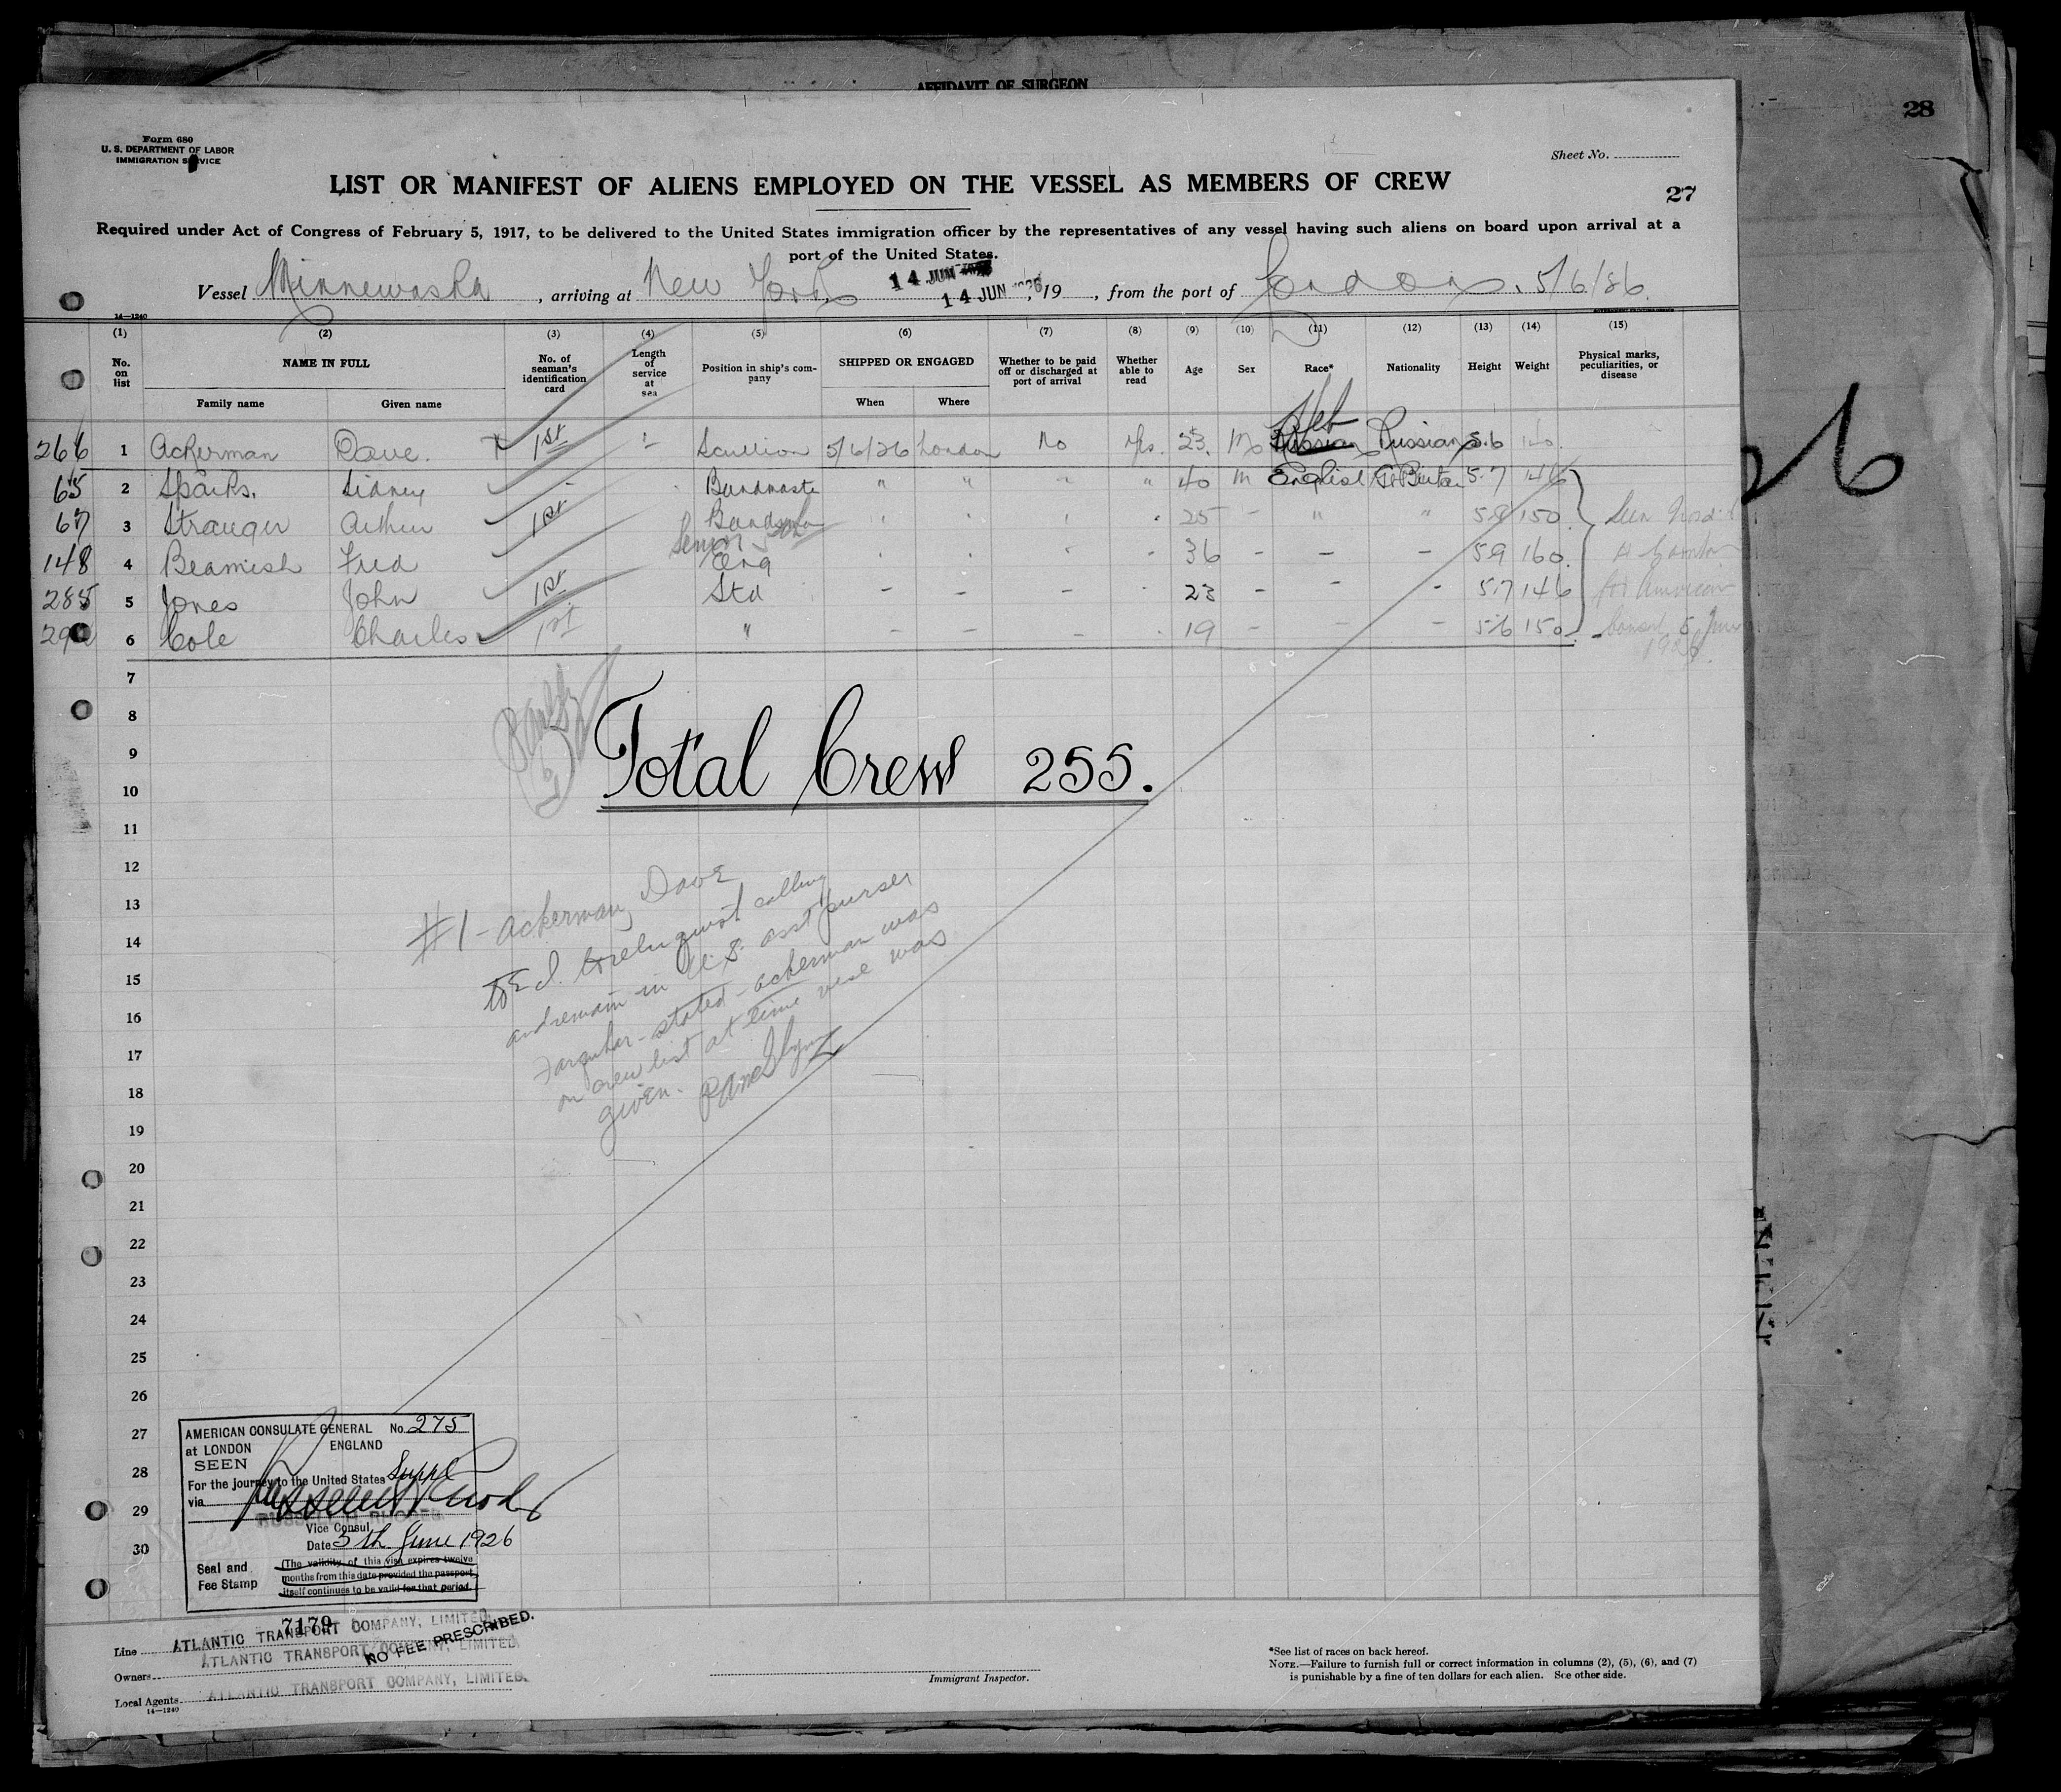 AFFIDAVIT OF SURGEON
28
Form 680
U. S. DEPARTMENT OF LABOR
IMMIGRATION SERVICE
Sheet No.
LIST OR MANIFEST OF ALIENS EMPLOYED ON THE VESSEL AS MEMBERS OF CREW
27
Required under Act of Congress of February 5, 1917, to be delivered to the United States immigration officer by the representatives of any vessel having such aliens on board upon arrival at a
port of the United States.
Vessel Minnewaska, arriving at New York, 14 JUN 14 JUN 1926, 19, from the port of London. 5/6/26.
14—1240
(1) (2) (3) (4) (5) (6) (7) (8) (9) (10) (11) (12) (13) (14) (15)
No. on list NAME IN FULL No. of seaman's identification card Length of service at sea Position in ship's company SHIPPED OR ENGAGED Whether to be paid off or discharged at port of arrival Whether able to read Age Sex Race* Nationality Height Weight Physical marks, peculiarities, or disease
Family name Given name When Where
Heb
266 1 Ackerman Dave. 1st Scullion 5/6/26 London No Yes. 23. M Russian Russian 5.6 140.
65 2 Sparks. Sidney - Bandmaste " " " " 40 M English Gt Britain 5.7 146
67 3 Stranger Arthur 1st Bandsman 25 - " " 5.9 150
148 4 Beamish Fred Senior Eng 36 - - - 5.9 160.
285 5 Jones John 1st Std - - - 23 - - - 5.7 146 American
6 Cole Charles 1st " - - - 19 - - - 5.6 150 Consul 5 June
1926.
7
8
9
10
Total Crew 255.
26
11
12
13
14
15
16
17
18
19
20
21
22
23
24
25
26
27
28
29
30
#1 - Ackerman, Dave
to E.I.
and remain in U.S. asst purser
Farquhar - stated - ackerman was
on crew list at time vise was
given.
AMERICAN CONSULATE GENERAL No. 275
at LONDON ENGLAND
SEEN
For the journey to the United States Suppl
via
Vice Consul
Date 5th June 1926
Seal and
Fee Stamp
(The validity of this visa expires twelve
months from this date provided the passport
itself continues to be valid for that period.
7179
NO FEE PRESCRIBED.
Line ATLANTIC TRANSPORT COMPANY, LIMITED.
Owners ATLANTIC TRANSPORT COMPANY, LIMITED.
Local Agents ATLANTIC TRANSPORT COMPANY, LIMITED.
14—1240
Immigrant Inspector.
*See list of races on back hereof.
NOTE.—Failure to furnish full or correct information in columns (2), (5), (6), and (7)
is punishable by a fine of ten dollars for each alien. See other side.